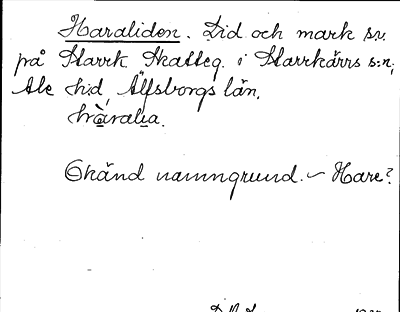 Haraliden. Lid och mark s.v.
på Starrk. Skatteg. i Starrkärrs s:n,
Ale h:d, Älfsborgs län.
Okänd namngrund. – Hare?